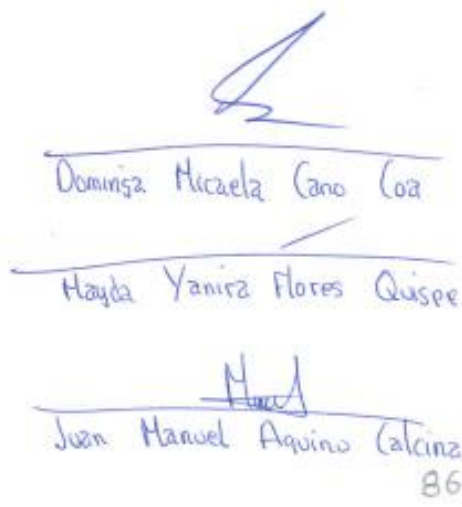 Dominga Micaela Cano Coa
Mayda Yanira Flores Quispe
Juan Manuel Aquino Calcina
86